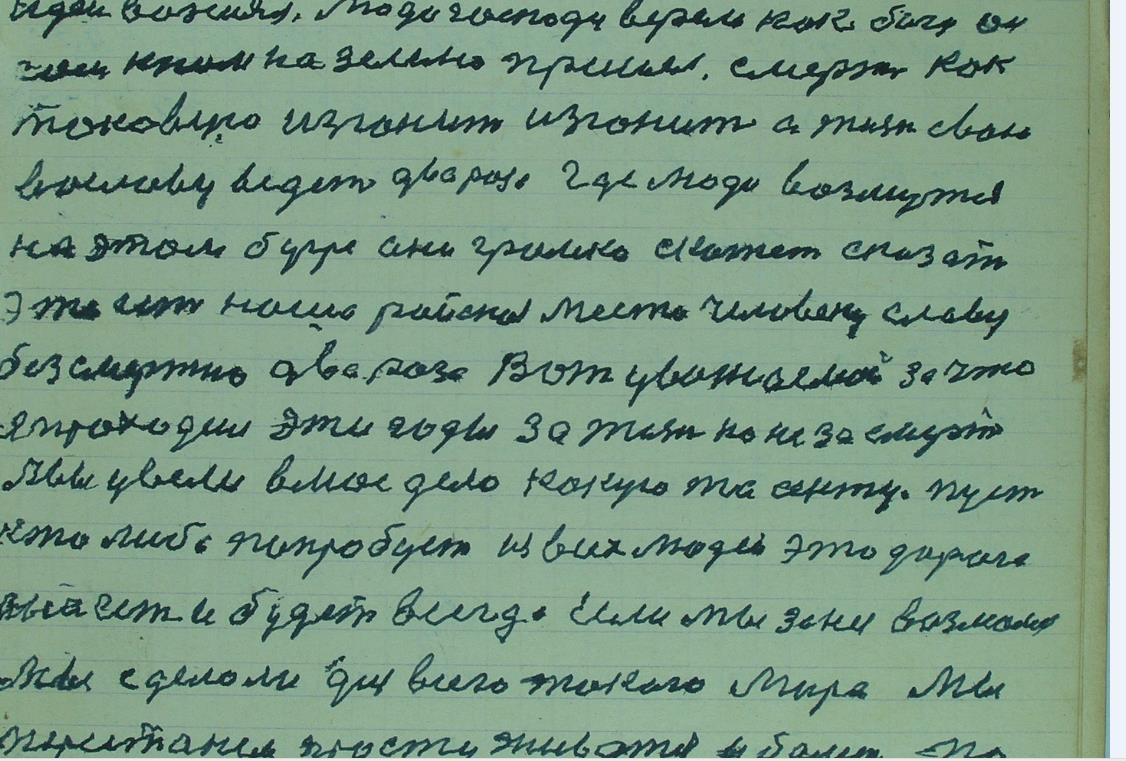 идея божия. Люди господу верели как богу он
на землю пришел. смерть как
таковую изгонит изгонит а жизн свою
вославу ведет два раза Где люди возмутся
на этом бугре ани громко скажет сказат
Это ест наше райская место человеку славу
безсмертно два раза Вот уважаемой за что
я проходил эти годы за жизн но не за смерт
Мы увели в мое дело какую та
пуст
кто либо попробует из всех людей это дорога
ест и будет всегда Если мы за ни возмемся
Мы сделоли для всего такого мира Мы
прости